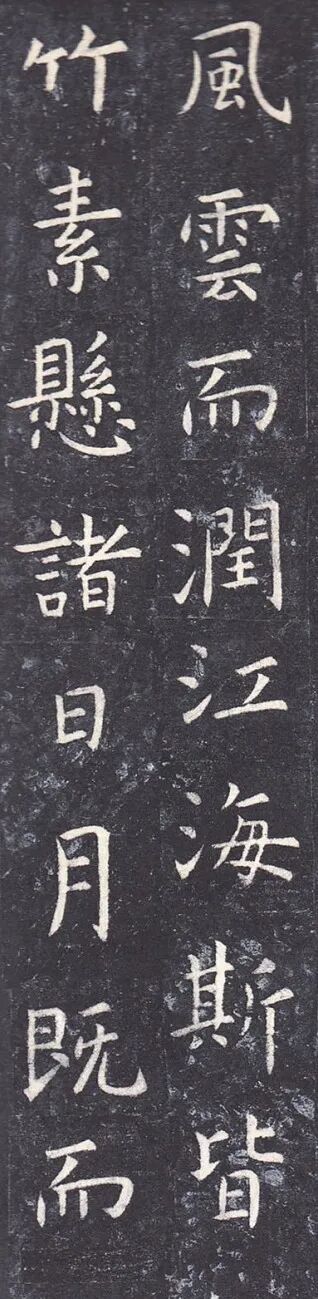 風雲而潤江海斯皆
竹素懸諸日月既而